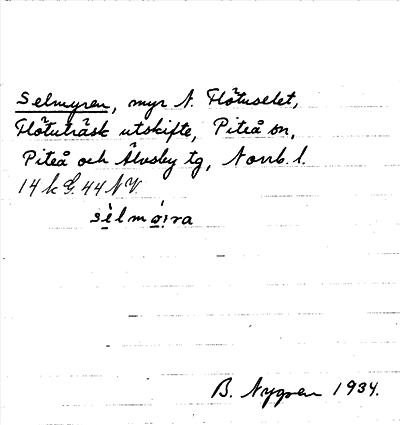 Selmyren, myr N. Flötuselet,
Flötuträsk utskifte, Piteå sn,
Piteå och Älvsby tg, Norrb. l.
14 k G. 44 NV.
sèlmøi̯ra
B. Nygren 1934.